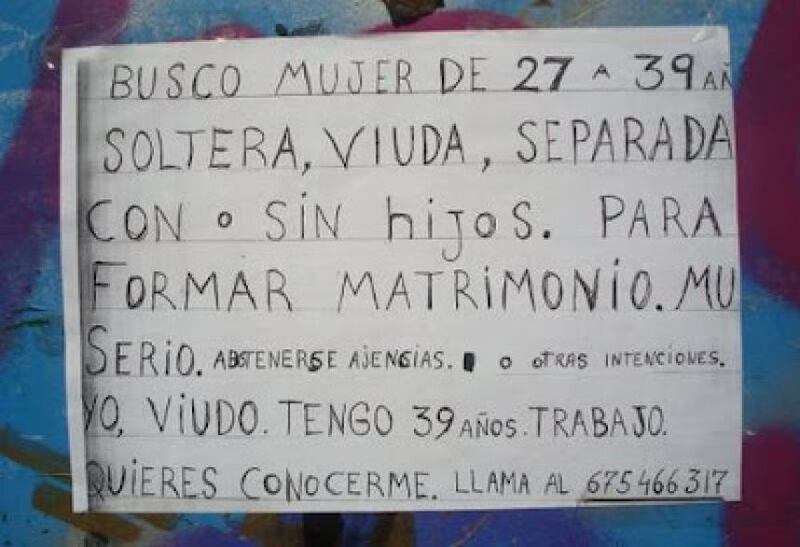 BUSCO MUJER DE 27 A 39 AÑ
SOLTERA, VIUDA, SEPARADA
CON o SIN hijos. PARA
FORMAR MATRIMONIO. MU
SERIO. ABSTENERSE AJENCIAS. o OTRAS INTENCIONES.
YO, VIUDO. TENGO 39 AÑOS. TRABAJO.
QUIERES CONOCERME. LLAMA AL 675466317